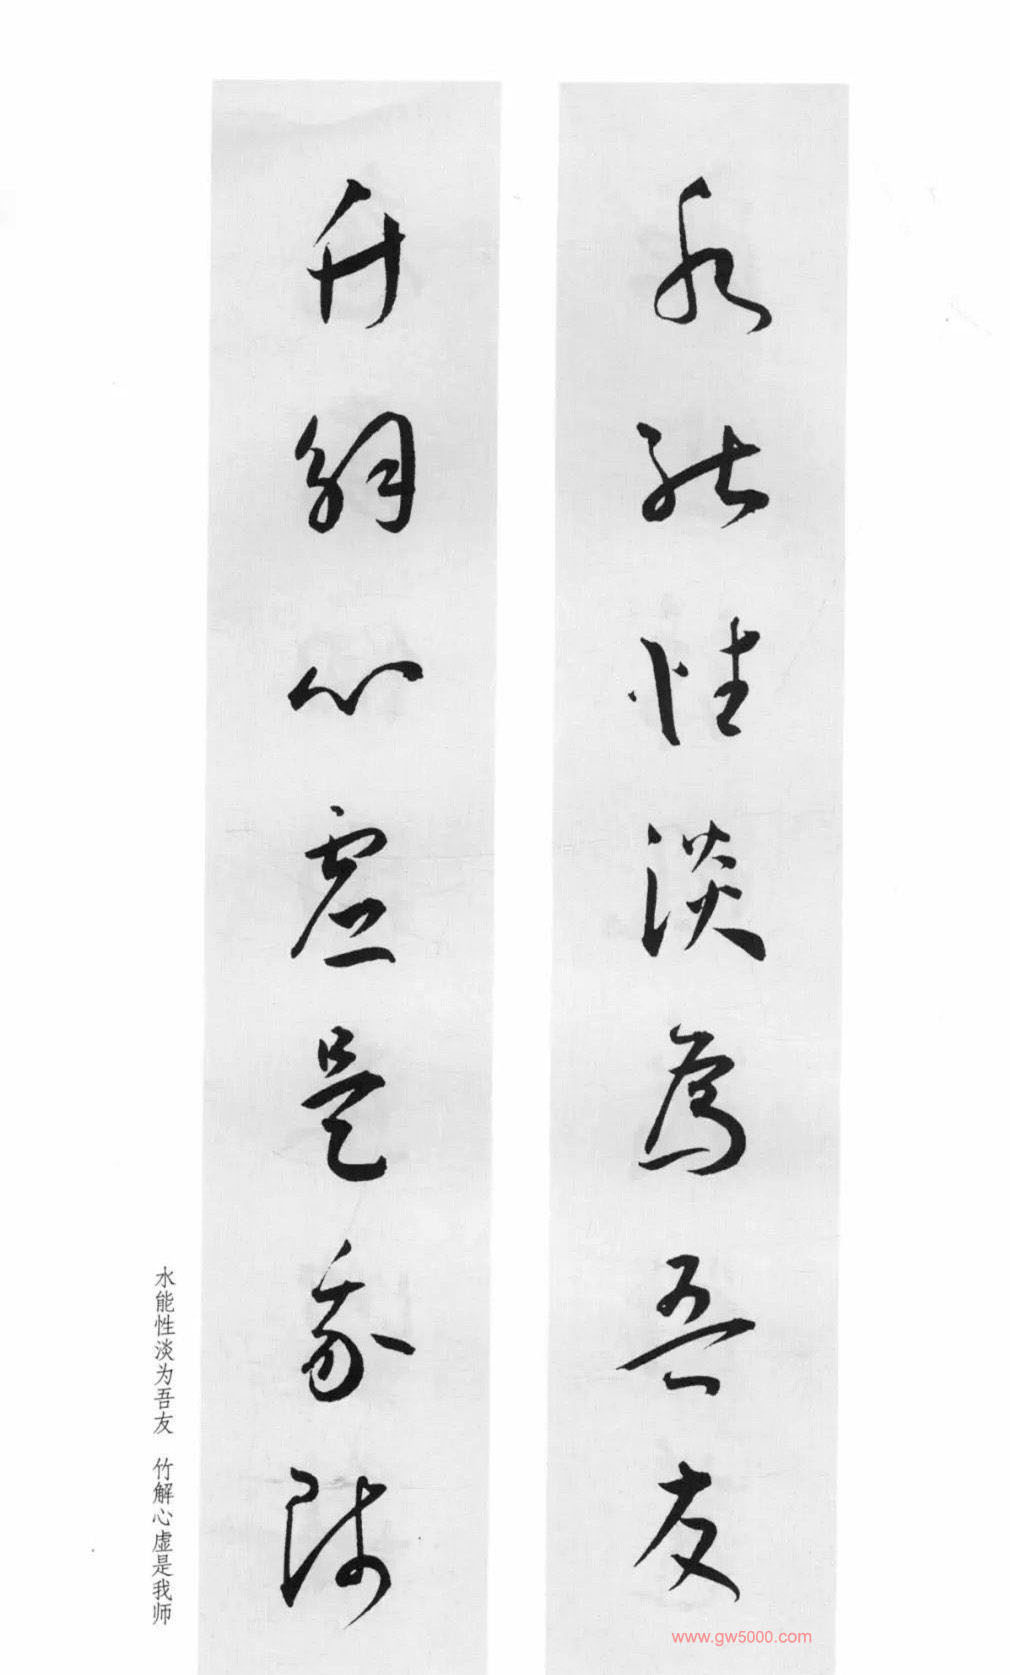 水能性淡為吾友
竹解心虛是我師
水能性淡为吾友 竹解心虚是我师
www.gw5000.com